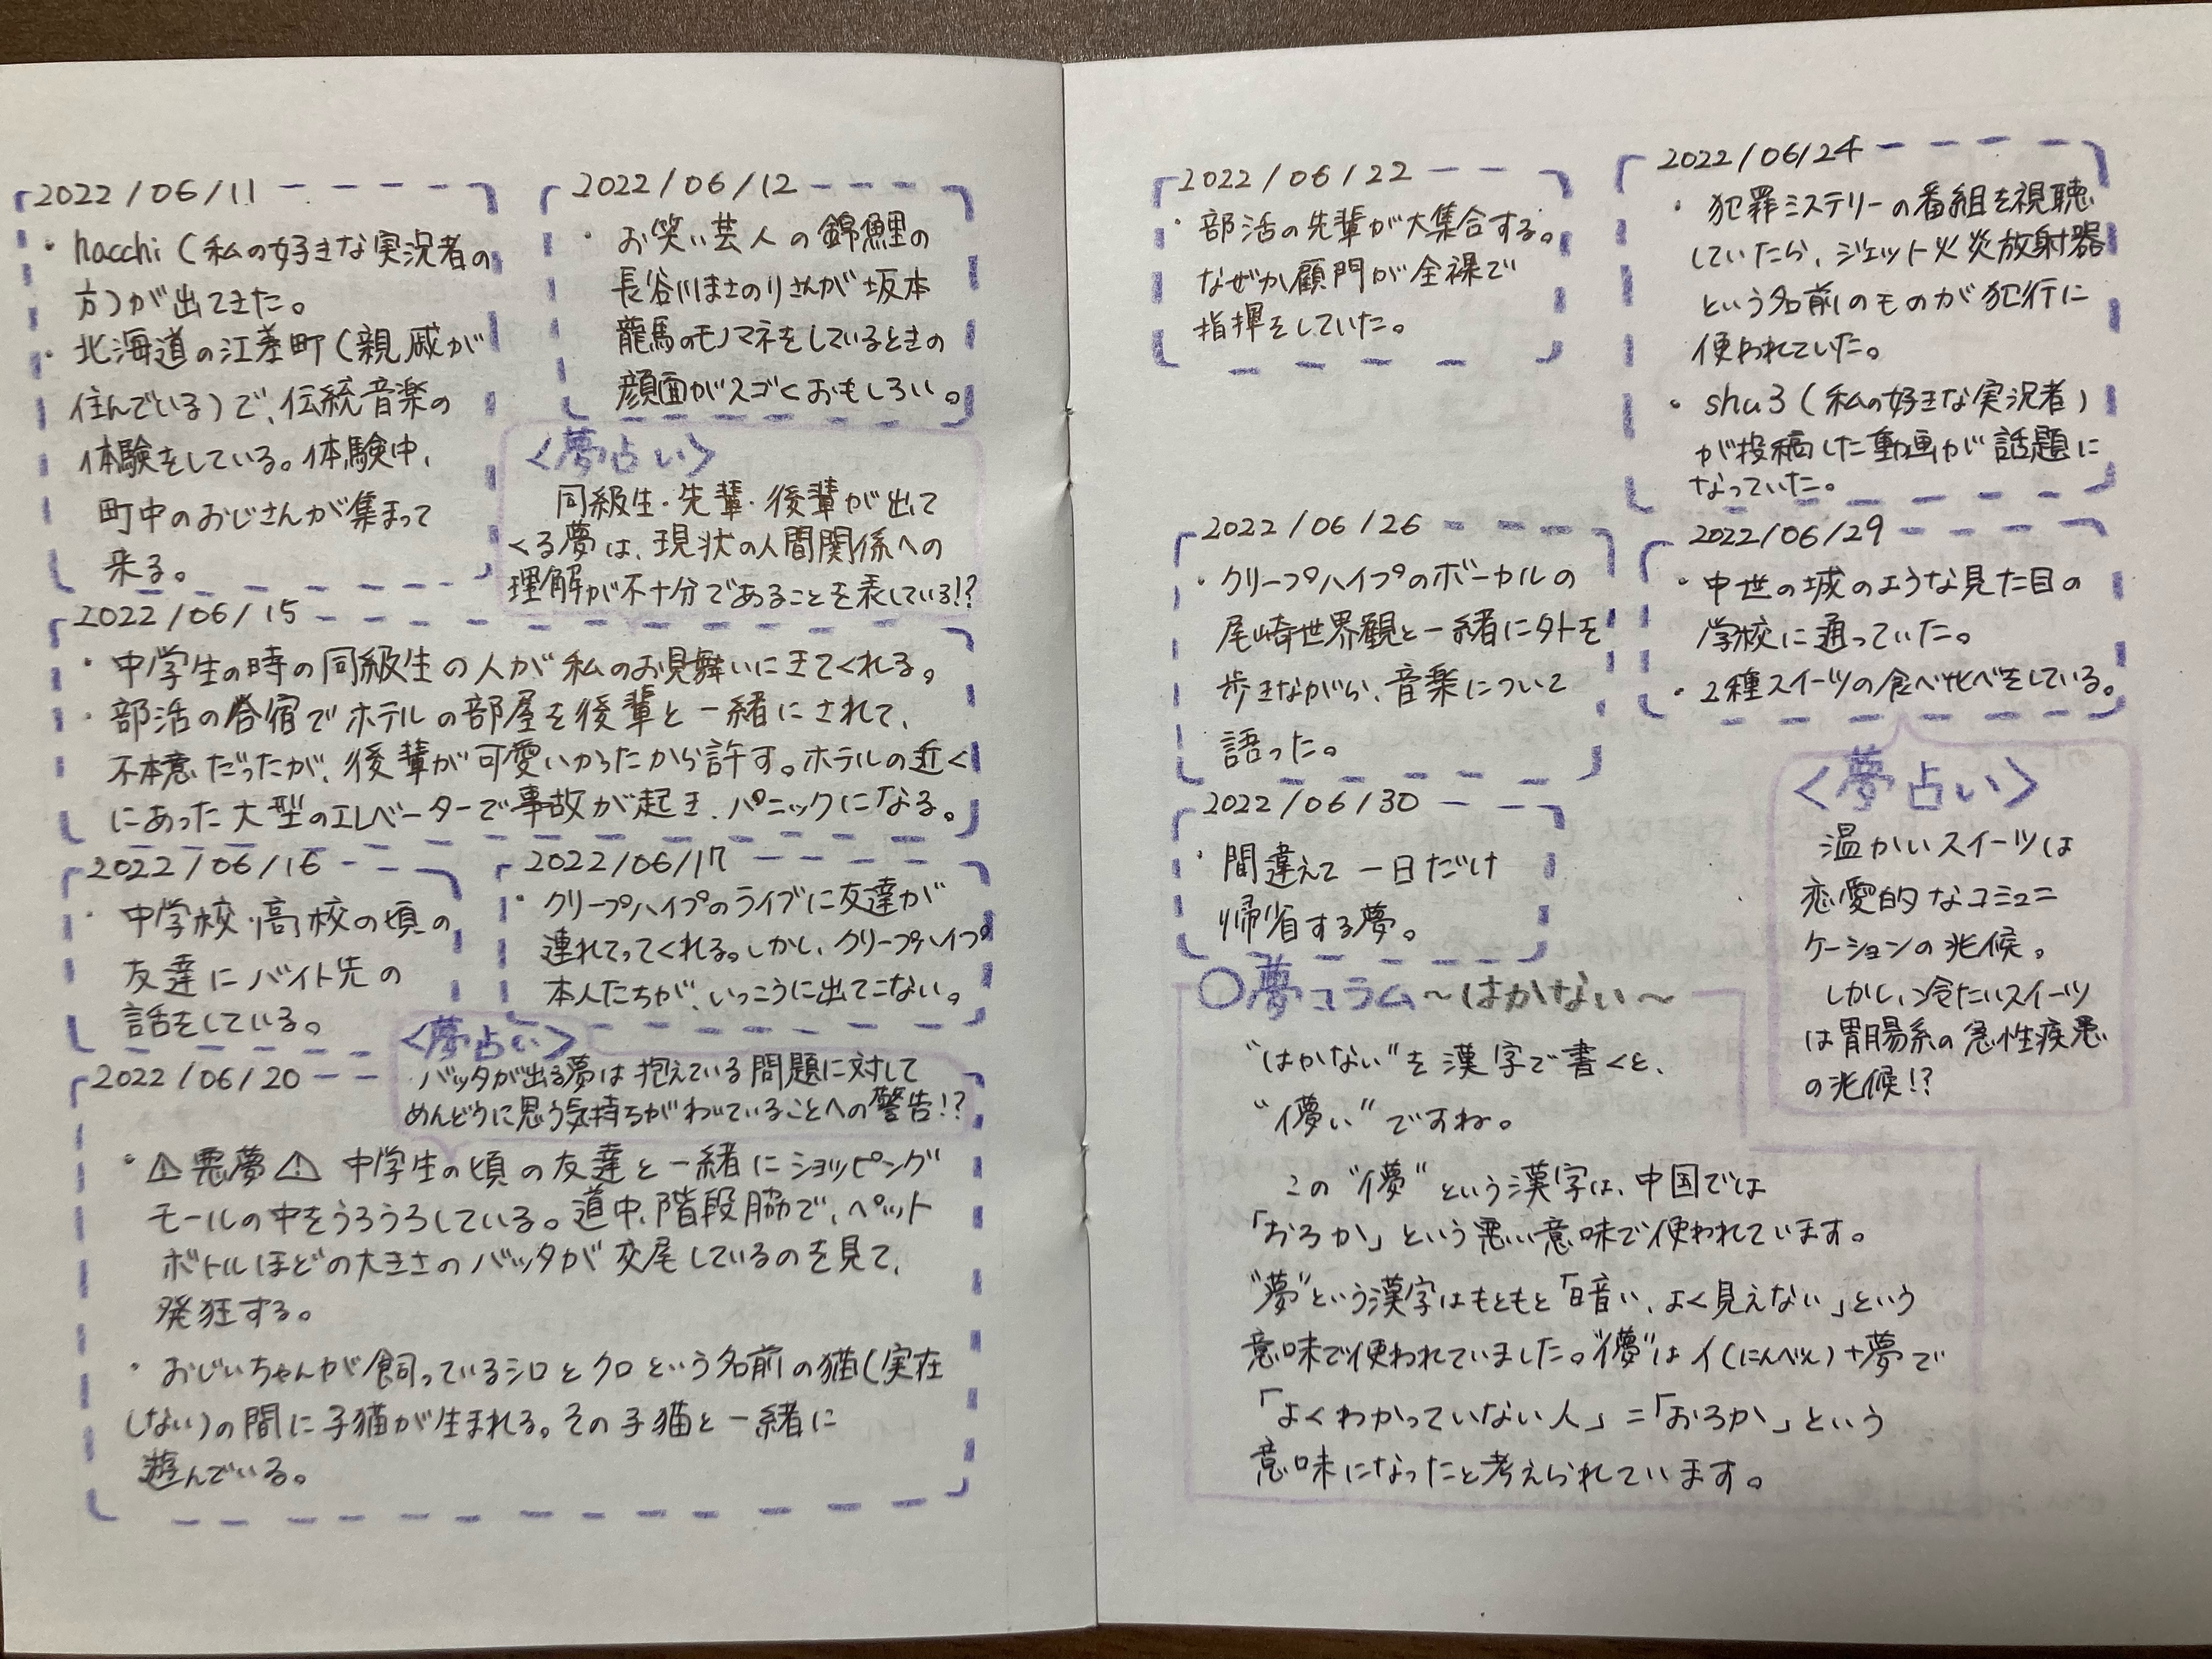 2022/06/11
・hacchi（私の好きな実況者の
方）が出てきた。
・北海道の江差町（親戚が
住んでいる）で、伝統音楽の
体験をしている。体験中、
町中のおじさんが集まって
来る。
2022/06/12
・お笑い芸人の錦鯉の
長谷川まさのりさんが坂本
龍馬のモノマネをしているときの
顔面がスゴくおもしろい。
＜夢占い＞
同級生・先輩・後輩が出て
くる夢は、現状の人間関係への
理解が不十分であることを表している!?
2022/06/15
・中学生の時の同級生の人が私のお見舞いにきてくれる。
・部活の合宿でホテルの部屋を後輩と一緒にされて、
不本意だったが、後輩が可愛いかったから許す。ホテルの近く
にあった大型のエレベーターで事故が起き、パニックになる。
2022/06/16
・中学校・高校の頃の
友達にバイト先の
話をしている。
2022/06/17
・クリープハイプのライブに友達が
連れてってくれる。しかし、クリープハイプ
本人たちが、いっこうに出てこない。
＜夢占い＞
バッタが出る夢は抱えている問題に対して
めんどうに思う気持ちがわいていることへの警告!?
2022/06/20
・⚠悪夢⚠ 中学生の頃の友達と一緒にショッピング
モールの中をうろうろしている。道中、階段脇で、ペット
ボトルほどの大きさのバッタが交尾しているのを見て、
発狂する。
・おじいちゃんが飼っているシロとクロという名前の猫（実在
しない）の間に子猫が生まれる。その子猫と一緒に
遊んでいる。
2022/06/22
・部活の先輩が大集合する。
なぜか顧門が全裸で
指揮をしていた。
2022/06/24
・犯罪ミステリーの番組を視聴
していたら、ジェット火炎放射器
という名前のものが犯行に
使われていた。
・shu3（私の好きな実況者）
が投稿した動画が話題に
なっていた。
2022/06/26
・クリープハイプのボーカルの
尾崎世界観と一緒に外を
歩きながら、音楽について
語った。
2022/06/29
・中世の城のような見た目の
学校に通っていた。
・2種スイーツの食べ比べをしている。
2022/06/30
・間違えて一日だけ
帰省する夢。
＜夢占い＞
温かいスイーツは
恋愛的なコミュニ
ケーションの兆候。
しかし、冷たいスイーツ
は胃腸系の急性疾患
の兆候!?
○夢コラム～はかない～
“はかない”を漢字で書くと、
“儚い”ですね。
この“儚”という漢字は、中国では
「おろか」という悪い意味で使われています。
“夢”という漢字はもともと「暗い、よく見えない」という
意味で使われていました。“儚”は亻(にんべん)+夢で
「よくわかっていない人」=「おろか」という
意味になったと考えられています。